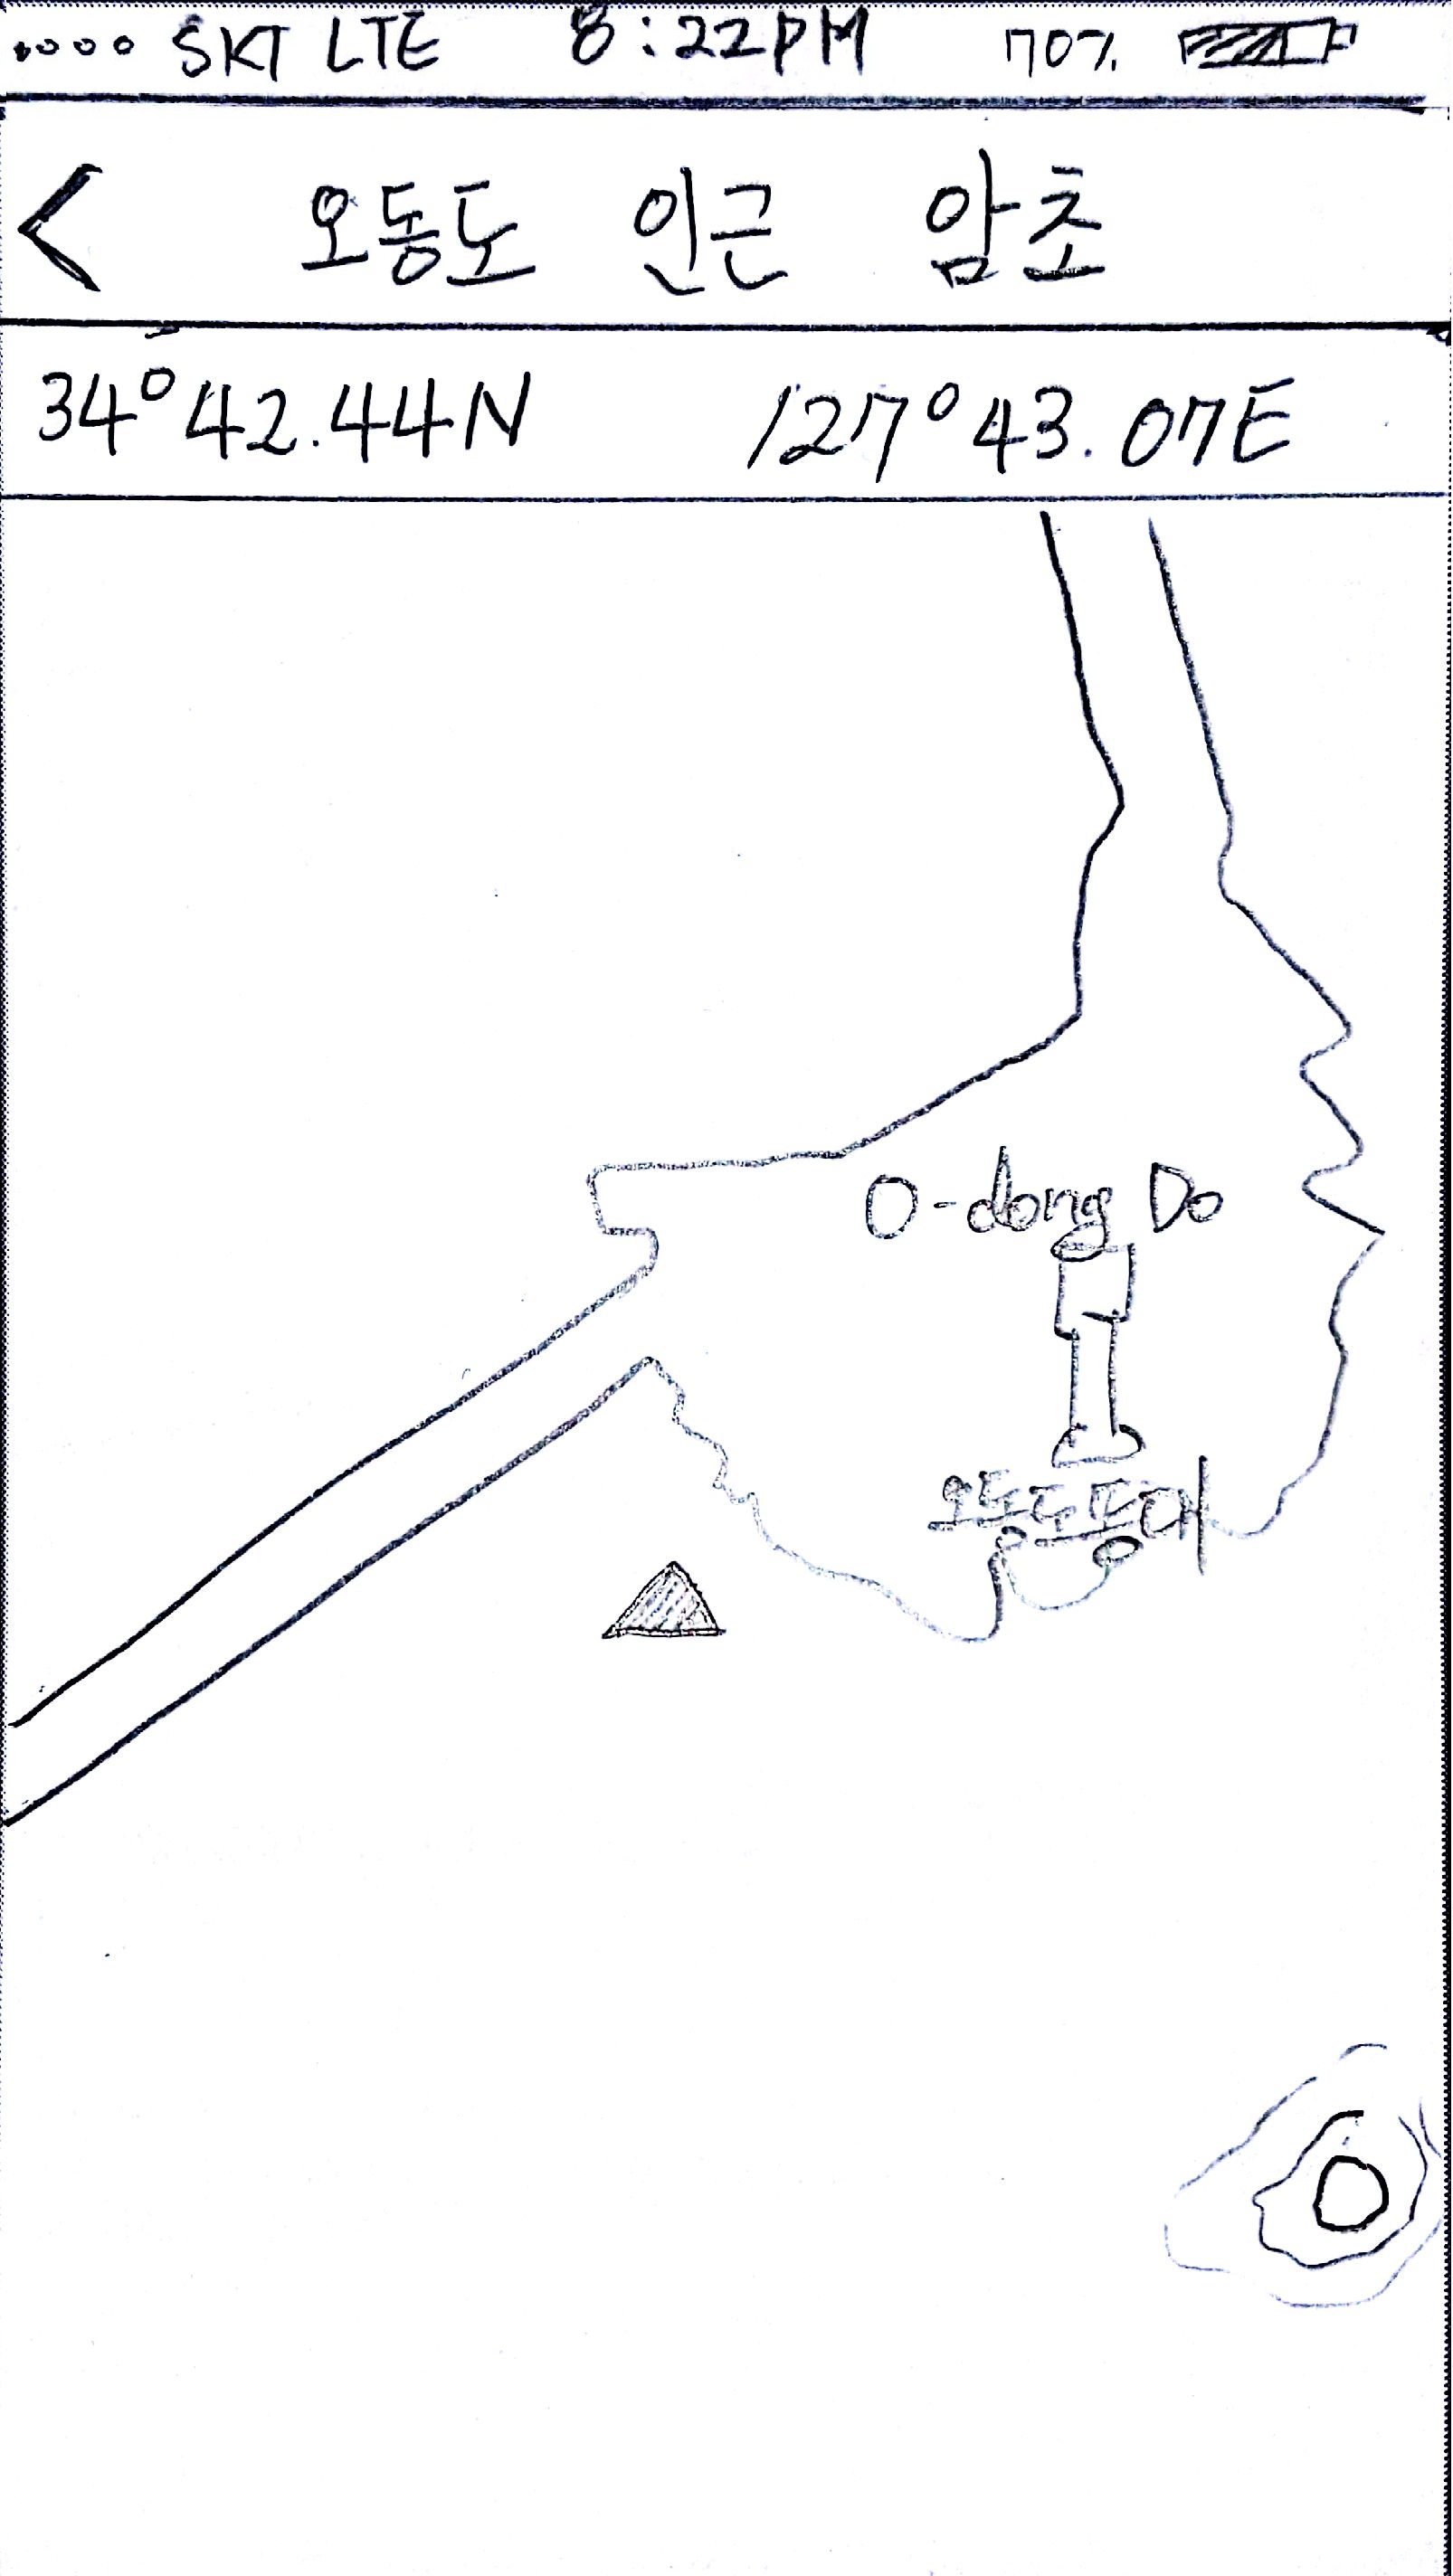 SKT LTE 8:22PM 70%
< 오동도 인근 암초
34°42.44N 127°43.07E
O-dong Do
오동도등대